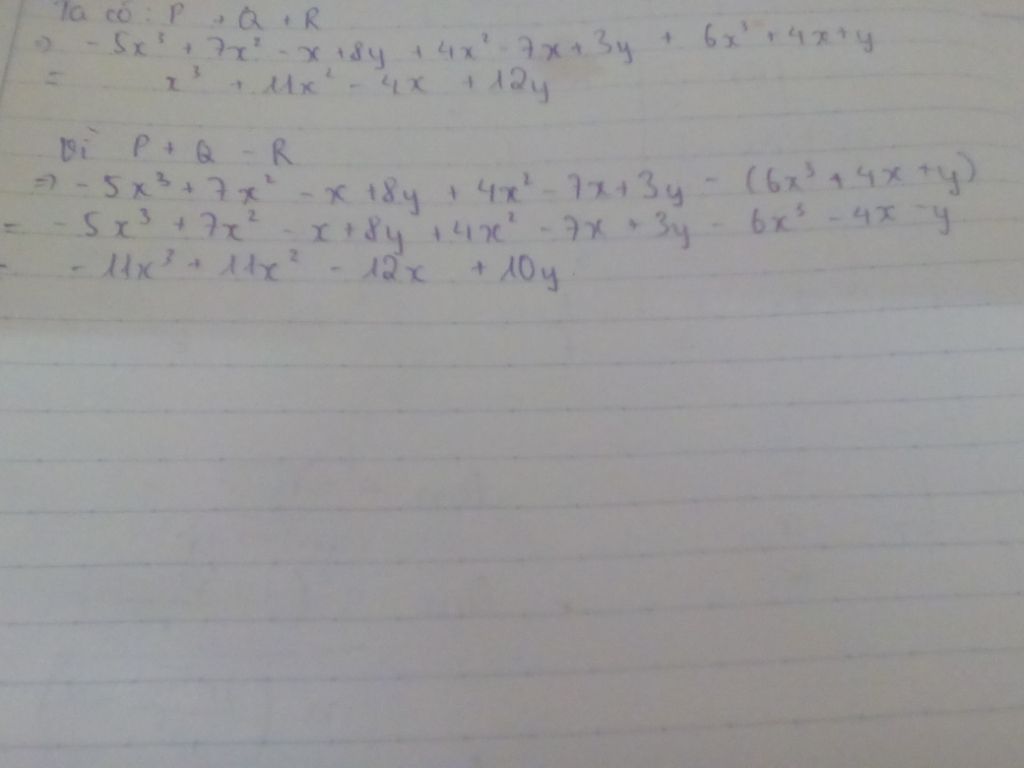 Ta có : P + Q + R
⇒ - 5x³ + 7x² - x + 8y + 4x² - 7x + 3y + 6x³ + 4x + y
= x³ + 11x² - 4x + 12y
Vì P + Q - R
⇒ - 5x³ + 7x² - x + 8y + 4x² - 7x + 3y - (6x³ + 4x + y)
= - 5x³ + 7x² - x + 8y + 4x² - 7x + 3y - 6x³ - 4x - y
= - 11x³ + 11x² - 12x + 10y